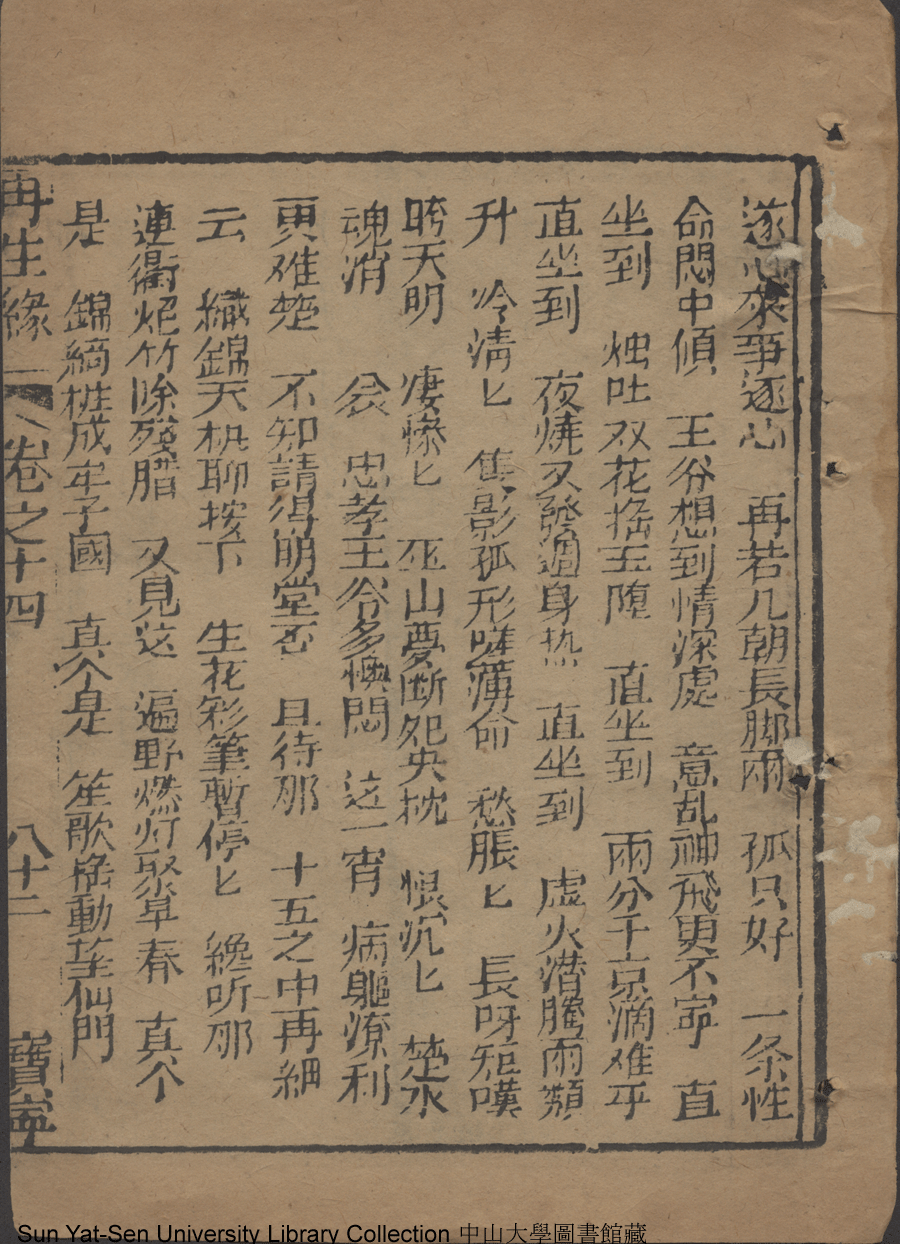 遂心來爭遂心　再若几朝長脚雨　孤只好　一条性
命悶中傾　王爷想到情深處　意乱神飛更不寍　直
坐到　烛吐双花搖玉陞　直坐到　雨分千点滴难乎
直坐到　夜燒又發週身热　直坐到　虚火潜騰两頰
升　冷清匕　隻影孤形嗟薄命　愁脹匕　長呀短嘆
晇天明　凄慘匕　巫山夢断怨央枕　恨沉匕　楚水
魂消　爷　忠孝王爷多懊悶　这一宵　病軀潦利
更难楚　不知請得明堂否　且待那　十五之中再細
云　織錦天机聊按下　生花彩筆暫停匕　纔听那
連衢炮竹除殘腊　又見这　遍野燃灯聚草春　真个
是　錦綉桩成年子國　真个是　笙歌搖動莖仙門
再生緣　卷之十四　八十二　寶寍
Sun Yat-Sen University Library Collection 中山大學圖書館藏